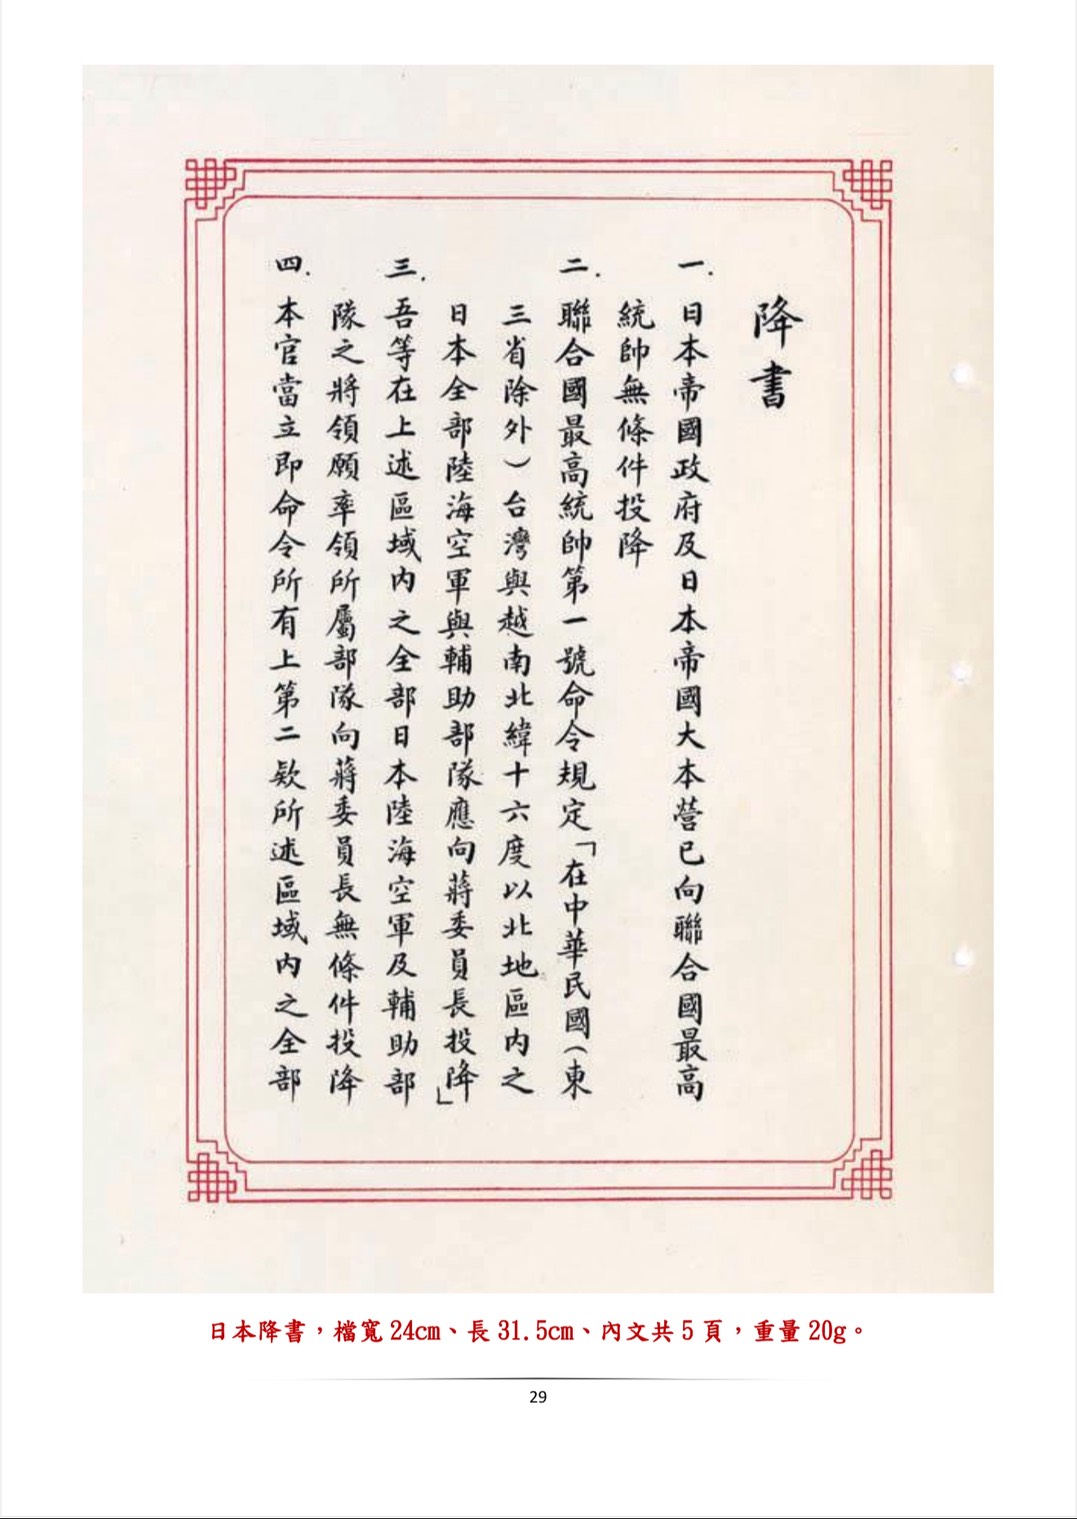 降書
一. 日本帝國政府及日本帝國大本營已向聯合國最高
統帥無條件投降
二. 聯合國最高統帥第一號命令規定「在中華民國(東
三省除外)台灣與越南北緯十六度以北地區內之
日本全部陸海空軍與輔助部隊應向蔣委員長投降」
三. 吾等在上述區域內之全部日本陸海空軍及輔助部
隊之將領願率領所屬部隊向蔣委員長無條件投降
四. 本官當立即命令所有上第二欵所述區域內之全部
日本降書，檔寬 24cm、長 31.5cm、內文共 5 頁，重量 20g。
29